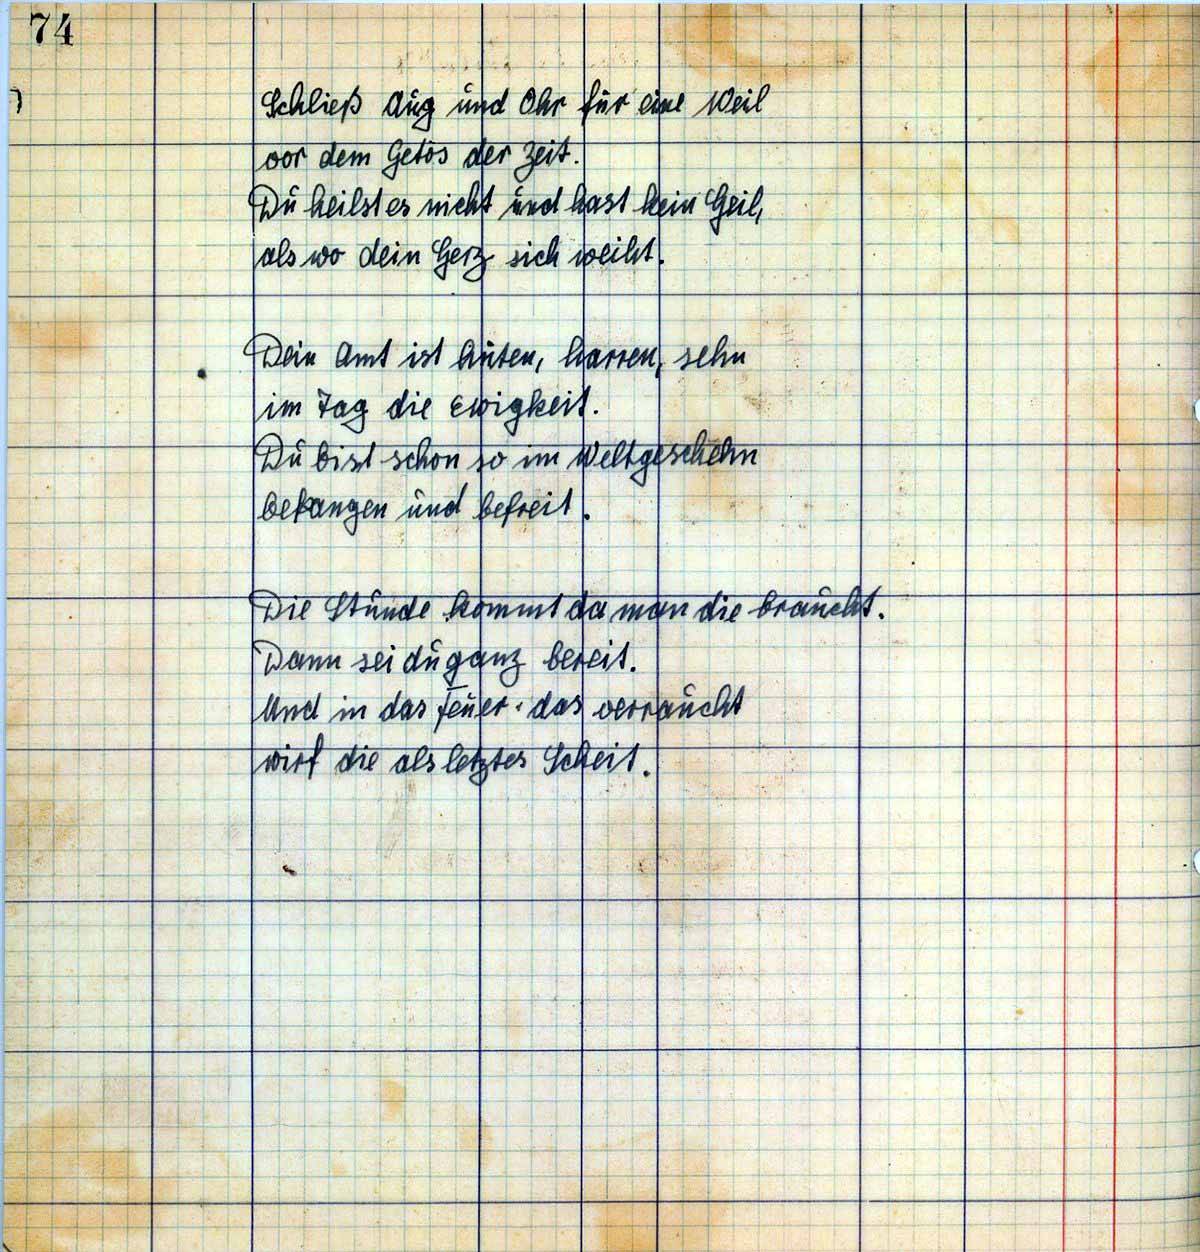 74
Schließ Aug und Ohr für eine Weil
vor dem Getös der Zeit.
Du heilst es nicht und hast kein Heil,
als wo dein Herz sich weiht.
Dein Amt ist hüten, harren, sehn
im Tag die Ewigkeit.
Du bist schon so im Weltgeschehn
befangen und befreit.
Die Stunde kommt da man die braucht.
Dann sei du ganz bereit.
Und in das Feuer, das verraucht
wirf die als letztes Scheit.